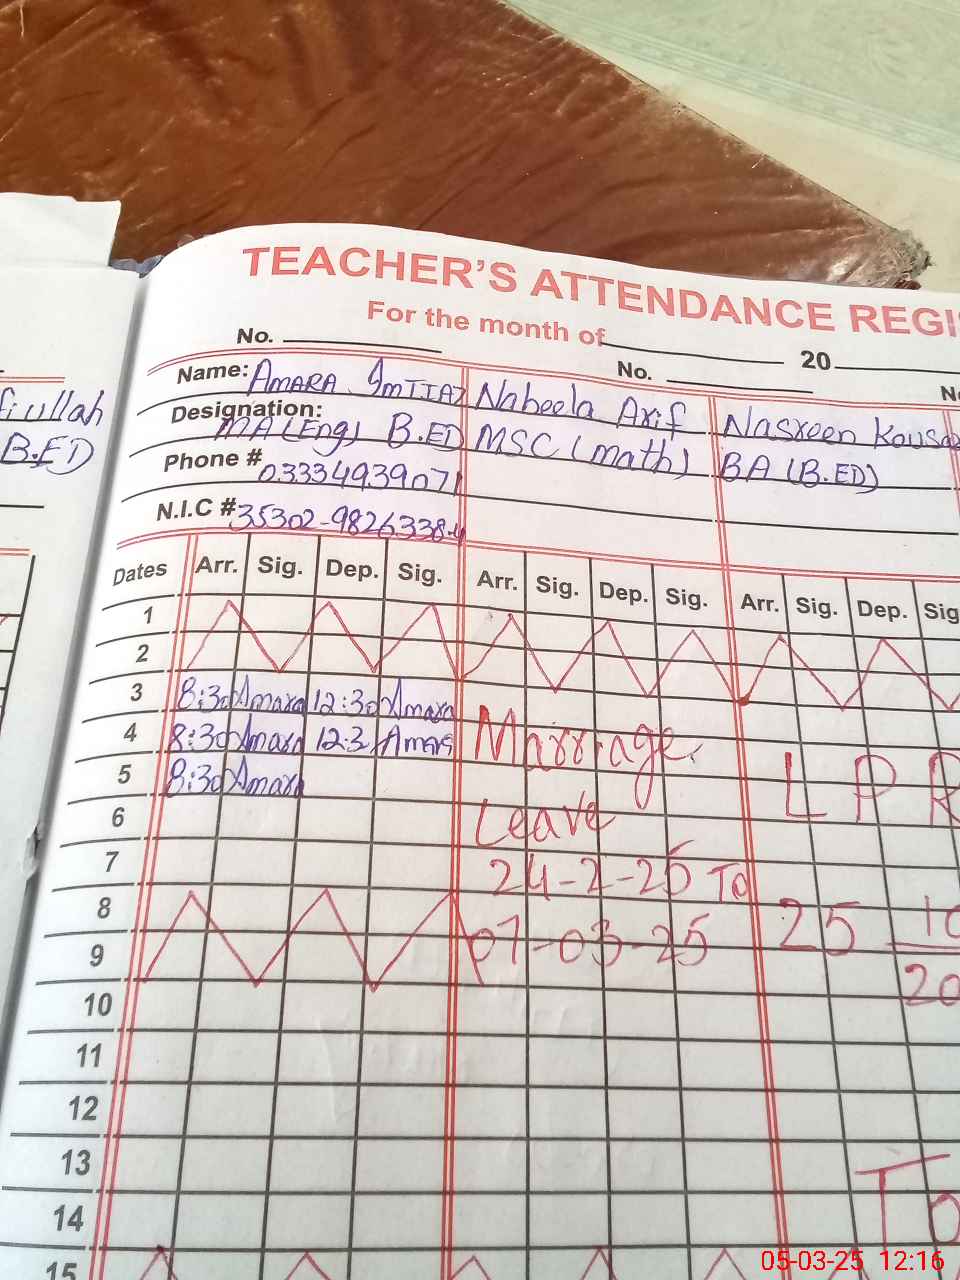 TEACHER'S ATTENDANCE REGI
For the month of 20
No. No.
fiullah
B.ED
Name: AMARA ImTIAZ Nabeela Arif Nasreen Kousa
Designation: MA (Eng) B.ED MSC (math) BA (B.ED)
Phone # 03334939071
N.I.C # 35302-9826338-4
Dates Arr. Sig. Dep. Sig. Arr. Sig. Dep. Sig. Arr. Sig. Dep. Sig
1
2
3 8:30 Amara 12:30 Amara
4 8:30 Amara 12:3 Amara Marriage L P R
5 8:30 Amara
6 Leave
7 24-2-25 To
8 07-03-25 25 10
9 20
10
11
12
13
14 To
15
05-03-25 12:16